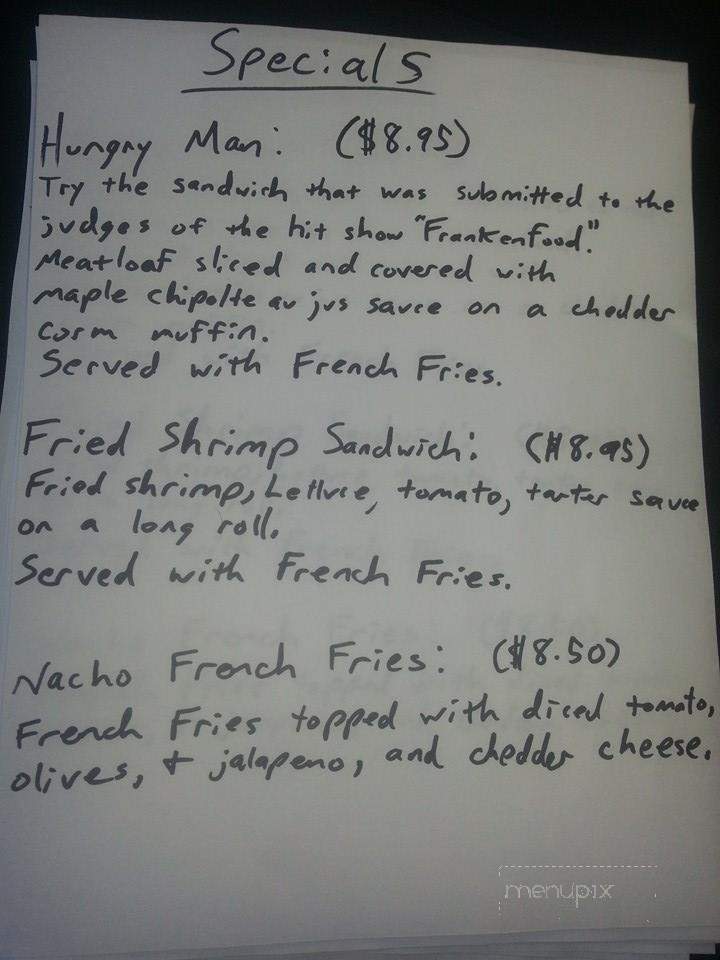 Specials
Hungry Man: ($8.95)
Try the sandwich that was submitted to the
judges of the hit show "Frankenfood."
Meatloaf sliced and covered with
maple chipolte au jus sauce on a chedder
corm muffin.
Served with French Fries.
Fried Shrimp Sandwich: ($8.95)
Fried shrimp, Lettuce, tomato, tarter sauce
on a long roll.
Served with French Fries.
Nacho French Fries: ($8.50)
French Fries topped with diced tomato,
olives, + jalapeno, and chedder cheese.
menupix